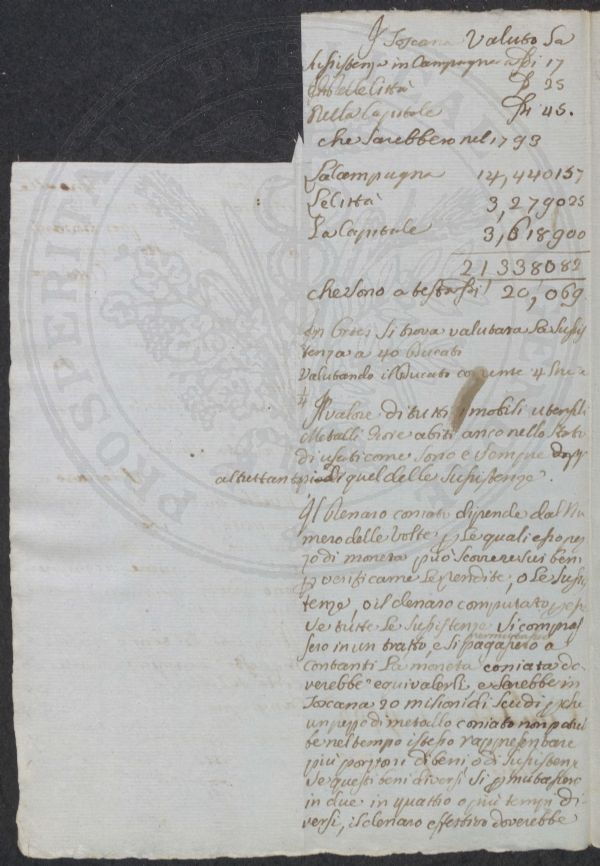 Toscana Valuto La
sussistenza in Campagna a 17
Nelle Città 25
Nella Capitale 45.
che sarebbero nel 1793
La Campagna 14,440157
Le Città 3,279025
La Capitale 3,618900
21338082
che sono a testa 20,069
In Si trova valutata la sussis
tenza a 40 Ducati
Valutando il Ducato corrente 4 lire e
1/4 Il valore di tutti i mobili utensili
Metalli Gioie abiti anco nello stato
di usati come sono è sempre
altrettanto di quel delle sussistenze.
Il Denaro coniato dipende dal Nu
mero delle Volte p le quali esso pez
zo di moneta può scorrere sui beni
p verificarne le rendite, o le sussis
tenze, o il denaro computato, p che
se tutte le sussistenze si compras
sero in un tratto, e si pagassero a
permutassero
Contanti la moneta coniata do
verebbe equivalerli e sarebbe in
Toscana 20 milioni di Scudi p che
un pezzo di metallo coniato non potreb
be nel tempo istesso rappresentare
più porzioni di beni o di sussistenze
se questi beni diversi si pmutassero
in due in quattro o più tempi di
versi, il denaro effettivo doverebbe
PROSPERITA